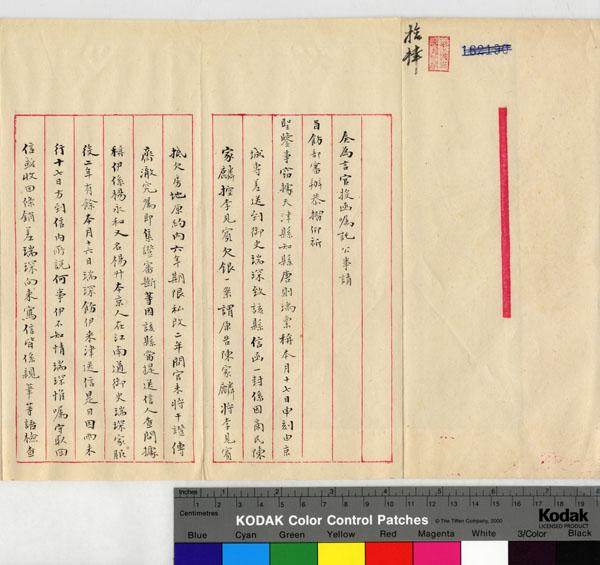 拾肆
182190
奏為言官投函囑託公事請
旨飭部審辦恭摺仰祈
聖鑒事竊據天津縣知縣唐則瑀稟稱本月十七日申刻由京
城專差送到御史瑞琛致該縣信函一封係因商民陳
家麟控李見賓欠銀一案謂原告陳家麟將李見賓
抵欠房地原約內六年期限私改二年問官未將干證傳
齊澈究屬即集證審斷等因該縣當提送信人查問據
稱伊係楊永和又名楊升本京人在江南道御史瑞琛家服
役二年有餘本月十六日瑞琛飭伊來津送信是日因雨未
行十七日方到信內所說何事伊不知情瑞琛惟囑守取回
信或收回條銷差瑞琛向來寫信皆係親筆等語檢查
Inches
Centimetres
KODAK Color Control Patches
© The Tiffen Company, 2000
Kodak
LICENSED PRODUCT
Blue Cyan Green Yellow Red Magenta White 3/Color Black